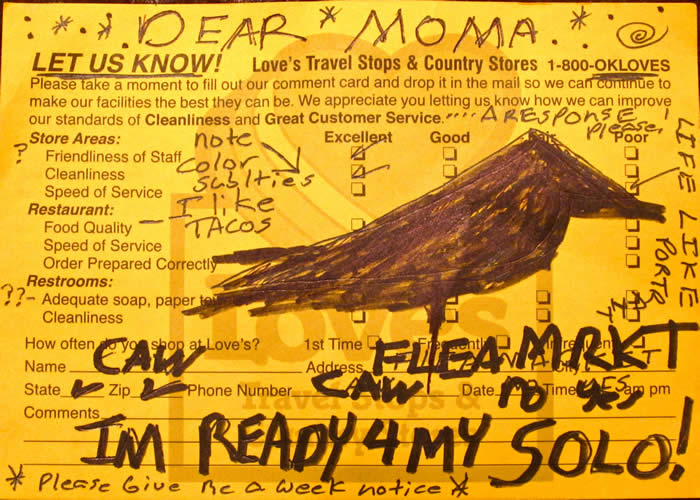 DEAR MOMA
LET US KNOW! Love's Travel Stops & Country Stores 1-800-OKLOVES
Please take a moment to fill out our comment card and drop it in the mail so we can continue to
make our facilities the best they can be. We appreciate you letting us know how we can improve
our standards of Cleanliness and Great Customer Service. A RESPONSE please!
Store Areas: Excellent Good Fair Poor
? Friendliness of Staff
Cleanliness
Speed of Service
note
color
sublties
Restaurant:
I like
TACOS
Food Quality
Speed of Service
Order Prepared Correctly
LIFE LIKE
PORTRAIT
Restrooms:
??- Adequate soap, paper
Cleanliness
How often do you shop at Love's? 1st Time Frequently
Name CAW Address FLEA MRKT
State Zip Phone Number CAW Date NO Time YES YES am pm
Comments
Loves
Travel Stops &
IM READY 4 MY SOLO!
* Please Give me a week notice *